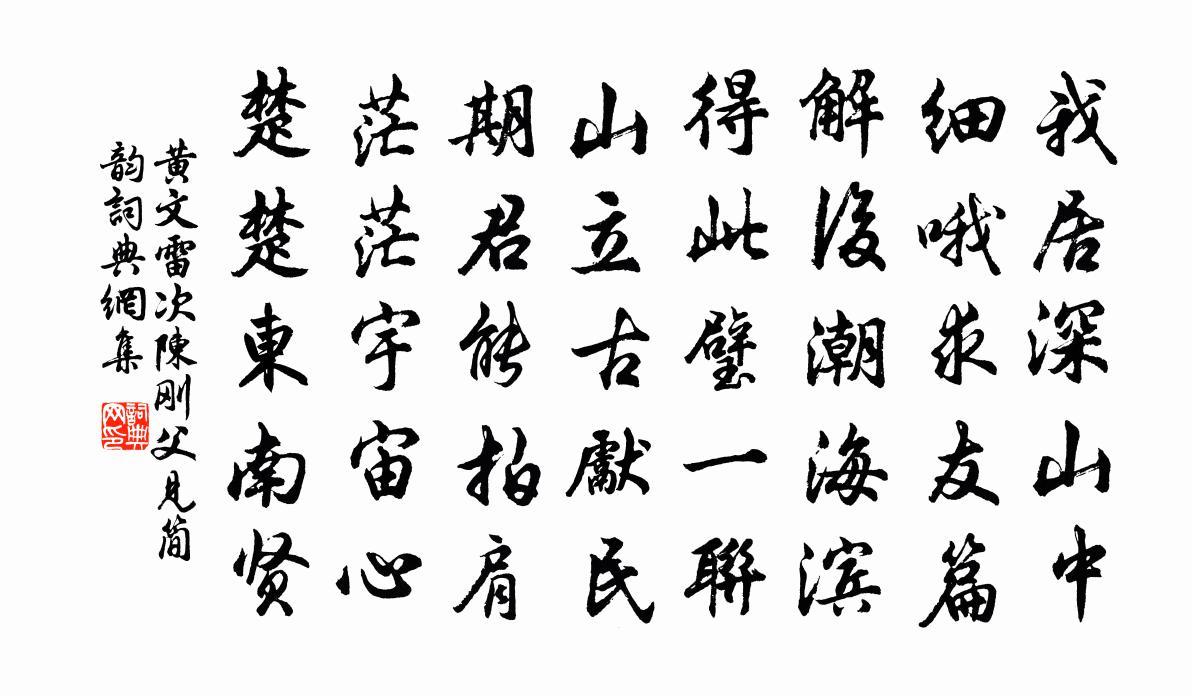 我居深山中
细哦求友篇
解后潮海滨
得此璧一联
山立古献民
期君能拍肩
茫茫宇宙心
楚楚东南贤
黄文雷次陈刚父见简
韵词典网集
词典
网印